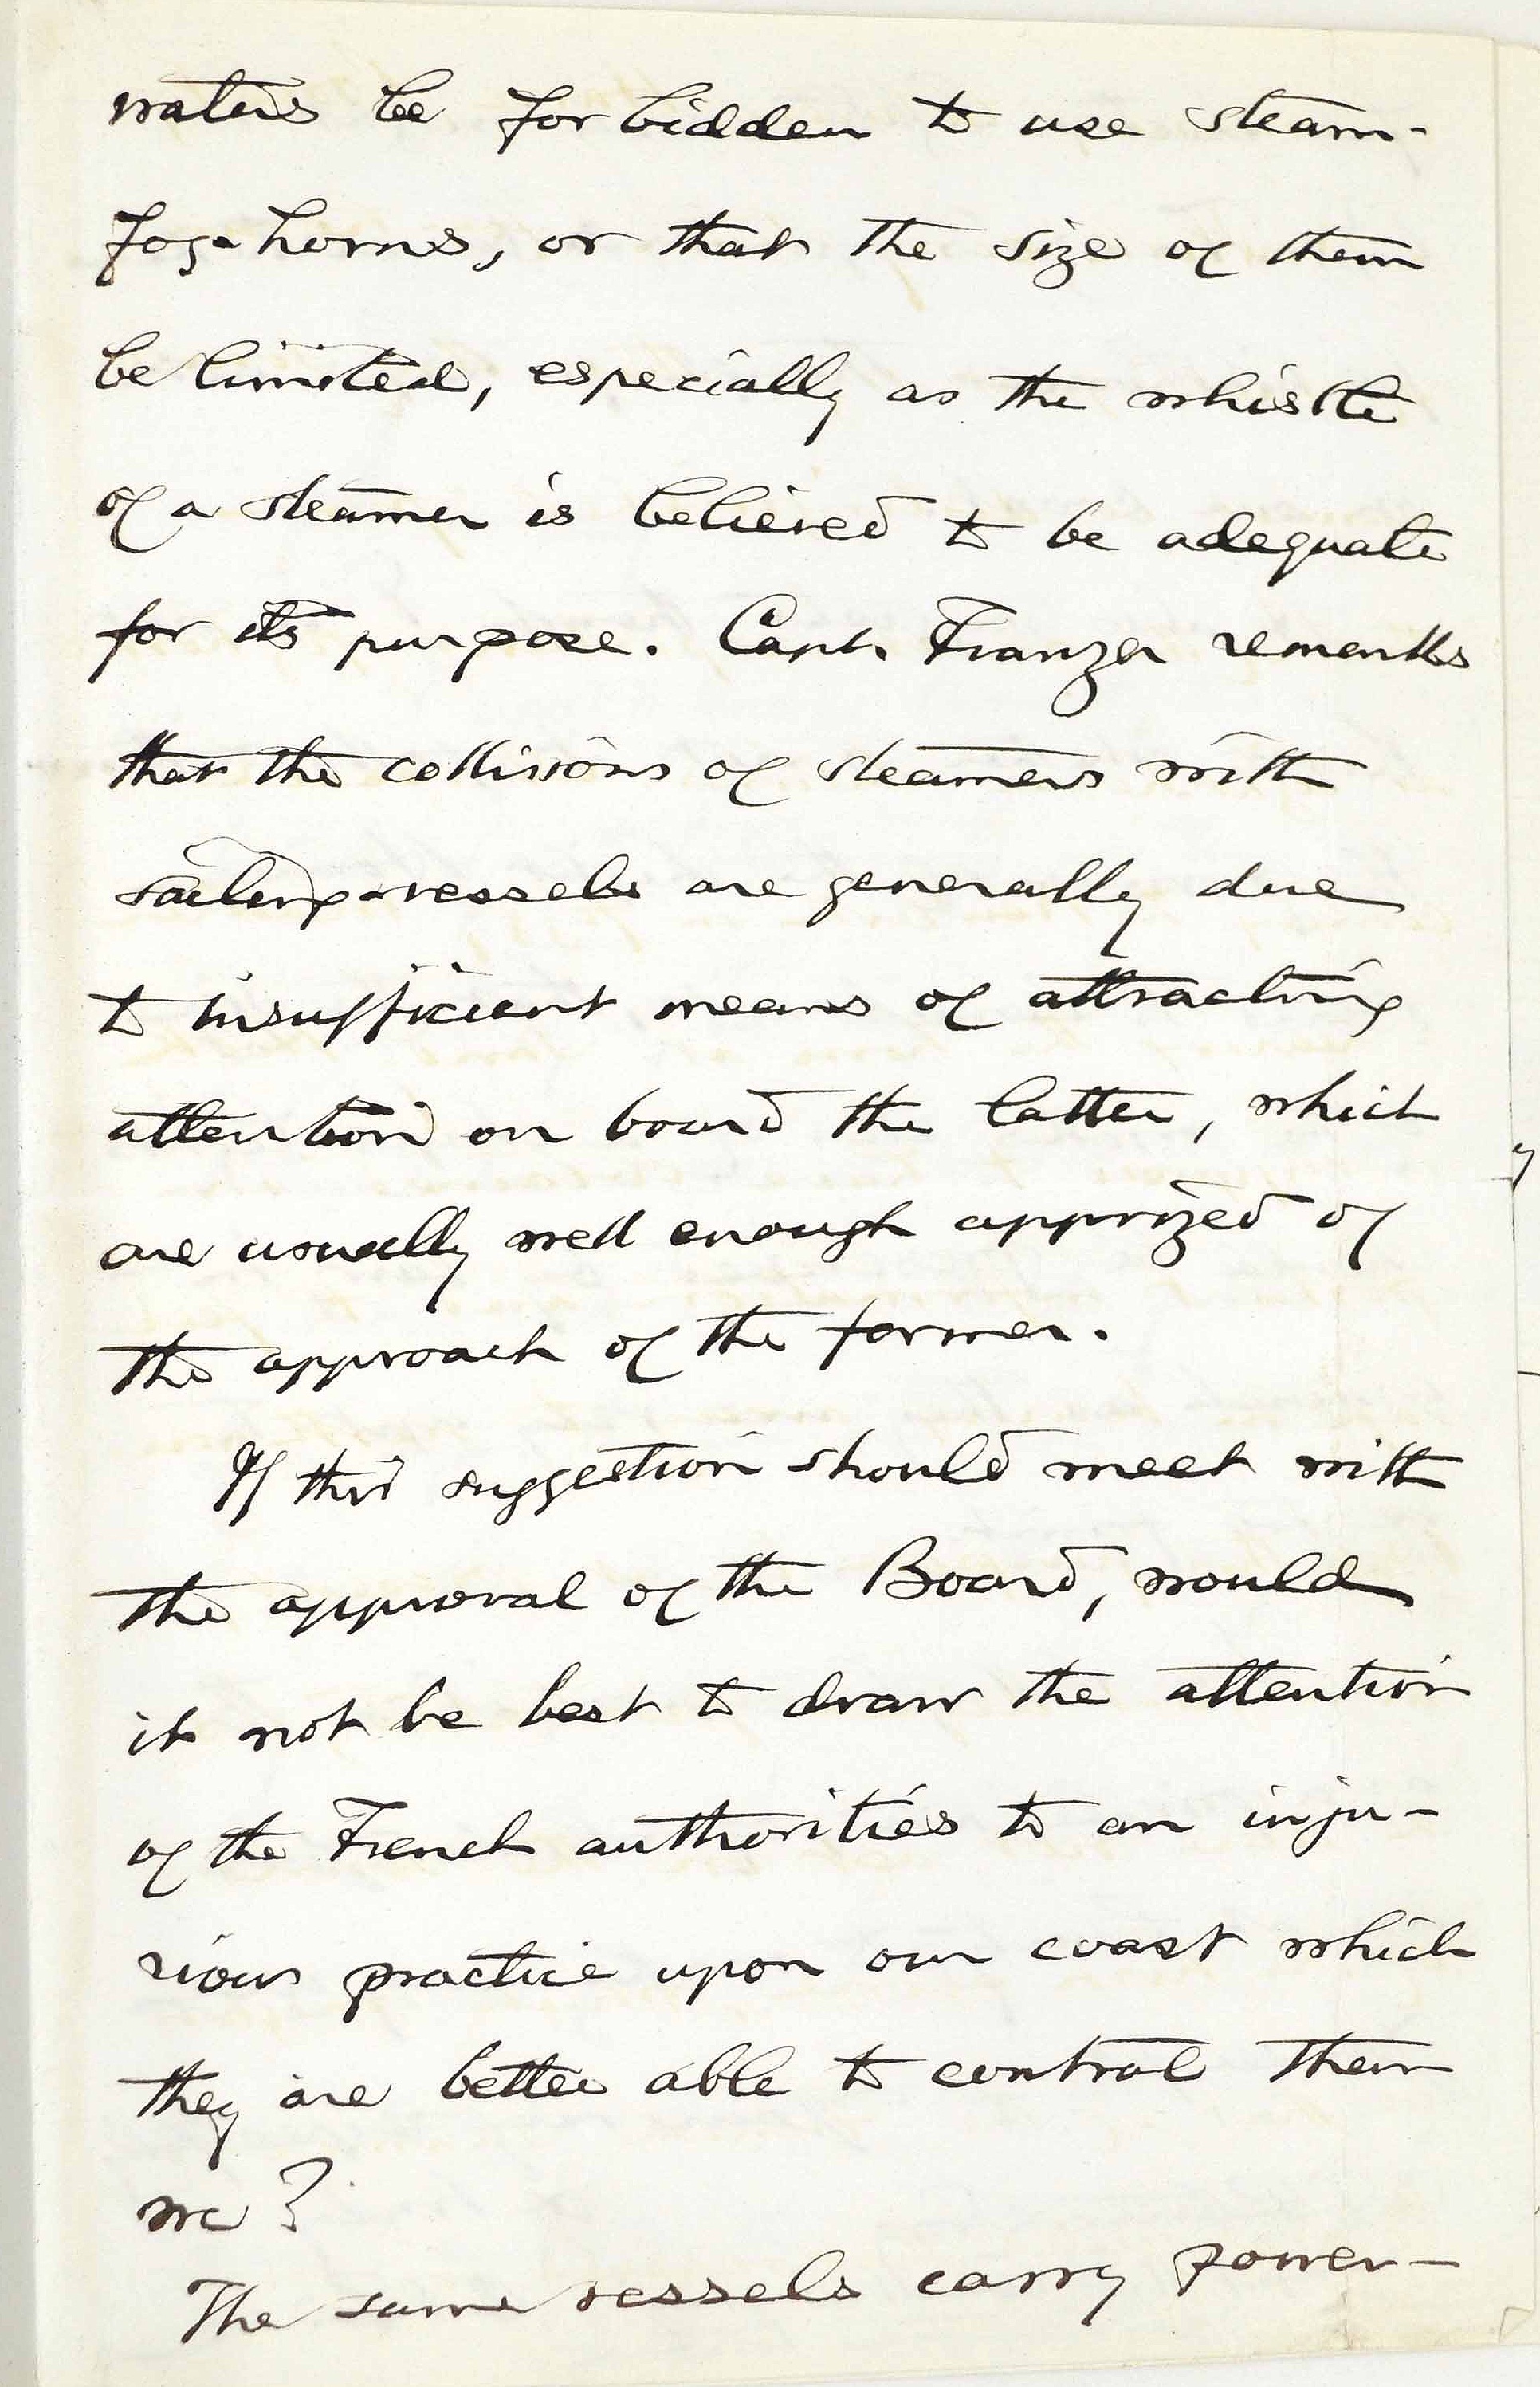 waters be forbidden to use steam-
fog-horns, or that the size of them
be limited, especially as the whistle
of a steamer is believed to be adequate
for its purpose. Capt. Franzen remarks
that the collisions of steamers with
sailing-vessels are generally due
to insufficient means of attracting
attention on board the latter, which
are usually well enough apprized of
the approach of the former.
If this suggestion should meet with
the approval of the Board, would
it not be best to draw the attention
of the French authorities to an inju-
rious practice upon our coast which
they are better able to control then
we?
The same vessels carry power-